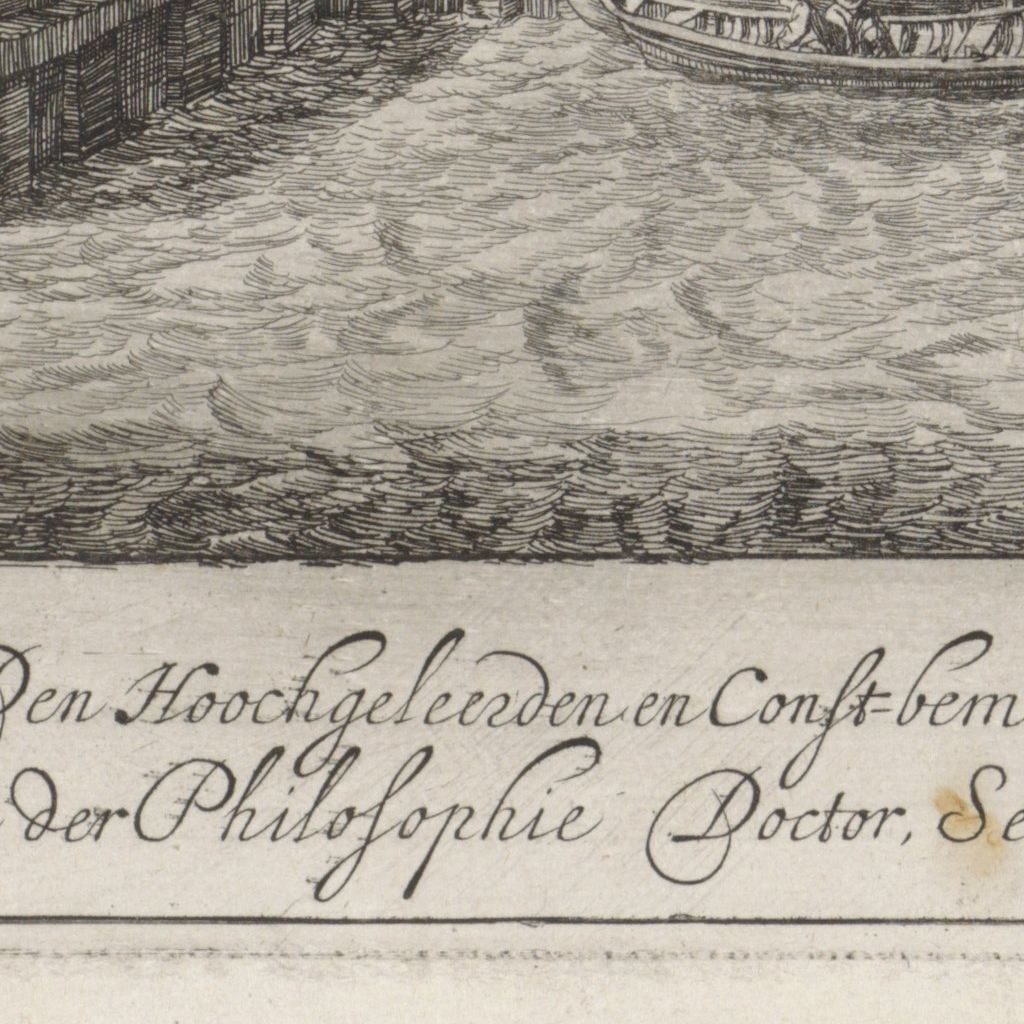 Den Hoochgeleerden en Const-bem
der Philosophie Doctor, Se